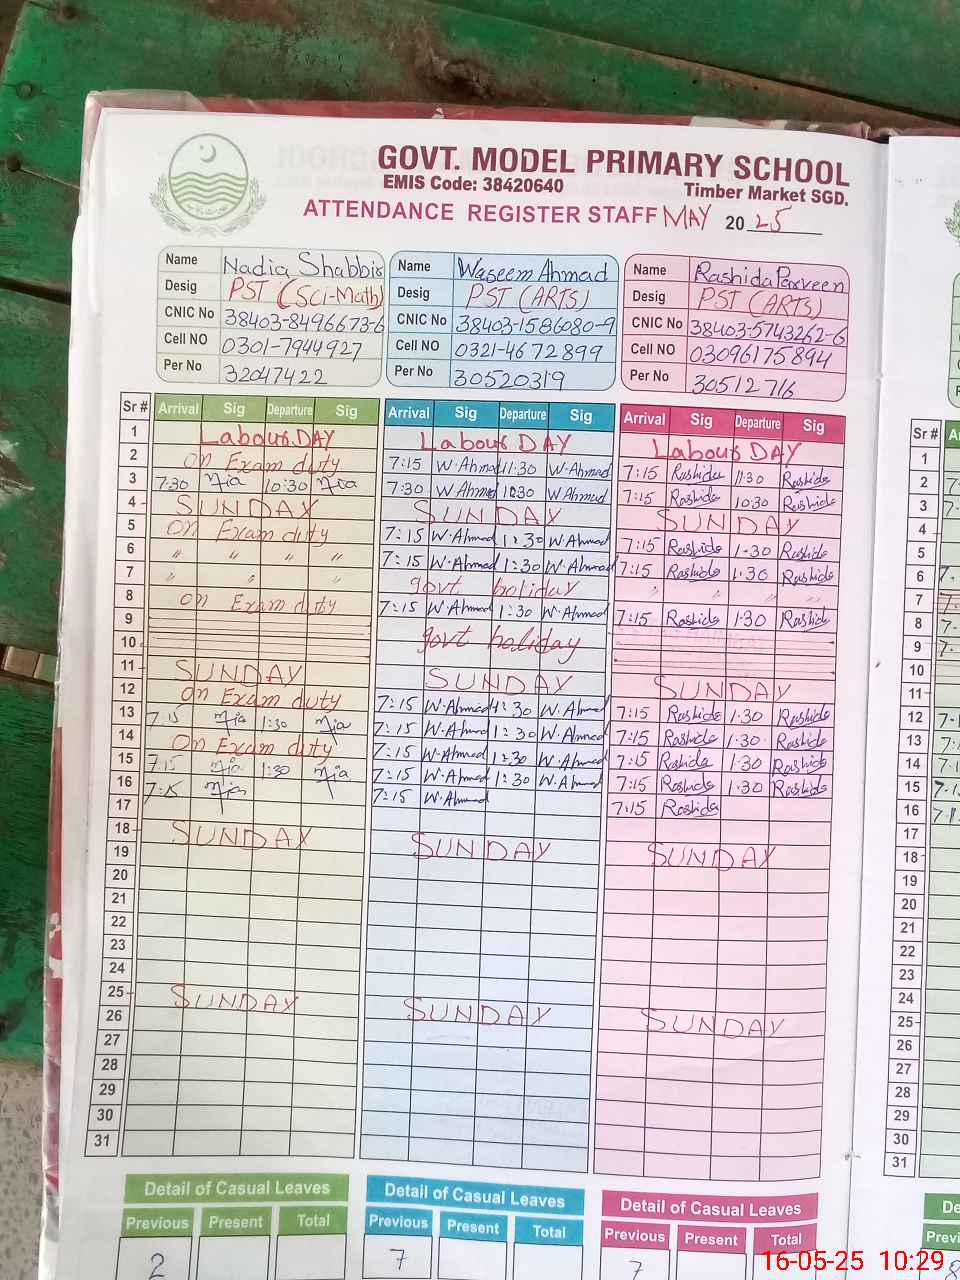 GOVT. MODEL PRIMARY SCHOOL
EMIS Code: 38420640 Timber Market SGD.
ATTENDANCE REGISTER STAFF MAY 2025
Name Nadia Shabbir Name Waseem Ahmad Name Rashida Parveen
Desig PST (Sci-Math) Desig PST (ARTS) Desig PST (ARTS)
CNIC No 38403-8496673-6 CNIC No 38403-1586080-9 CNIC No 38403-5743262-6
Cell NO 0301-7944927 Cell NO 0321-4672899 Cell NO 03096175894
Per No 32047422 Per No 30520319 Per No 30512716
Sr # Arrival Sig Departure Sig Arrival Sig Departure Sig Arrival Sig Departure Sig Sr #
1 Labour DAY Labour DAY Labour DAY 1
2 On Exam duty 7:15 W.Ahmad 11:30 W.Ahmad 7:15 Rashida 11:30 Rashida 2
3 7:30 Nia 10:30 Nia 7:30 W.Ahmad 10:30 W.Ahmad 7:15 Rashida 10:30 Rashida 3
4 SUNDAY SUNDAY SUNDAY 4
5 On Exam duty 7:15 W.Ahmad 1:30 W.Ahmad 7:15 Rashida 1:30 Rashida 5
6 " " " " 7:15 W.Ahmad 1:30 W.Ahmad 7:15 Rashida 1:30 Rashida 6
7 " " " govt holiday " " " " 7
8 On Exam duty 7:15 W.Ahmad 1:30 W.Ahmad 7:15 Rashida 1:30 Rashida 8
9 govt holiday 9
10 10
11 SUNDAY SUNDAY SUNDAY 11
12 On Exam duty 7:15 W.Ahmad 1:30 W.Ahmad 7:15 Rashida 1:30 Rashida 12
13 7:15 Nia 1:30 Nia 7:15 W.Ahmad 1:30 W.Ahmad 7:15 Rashida 1:30 Rashida 13
14 On Exam duty 7:15 W.Ahmad 1:30 W.Ahmad 7:15 Rashida 1:30 Rashida 14
15 7:15 Nia 1:30 Nia 7:15 W.Ahmad 1:30 W.Ahmad 7:15 Rashida 1:30 Rashida 15
16 7:15 Nia 7:15 W.Ahmad 7:15 Rashida 16
17 17
18 SUNDAY SUNDAY SUNDAY 18
19 19
20 20
21 21
22 22
23 23
24 24
25 SUNDAY SUNDAY SUNDAY 25
26 26
27 27
28 28
29 29
30 30
31 31
Detail of Casual Leaves Detail of Casual Leaves Detail of Casual Leaves
Previous Present Total Previous Present Total Previous Present Total
2 7 7
16-05-25 10:29